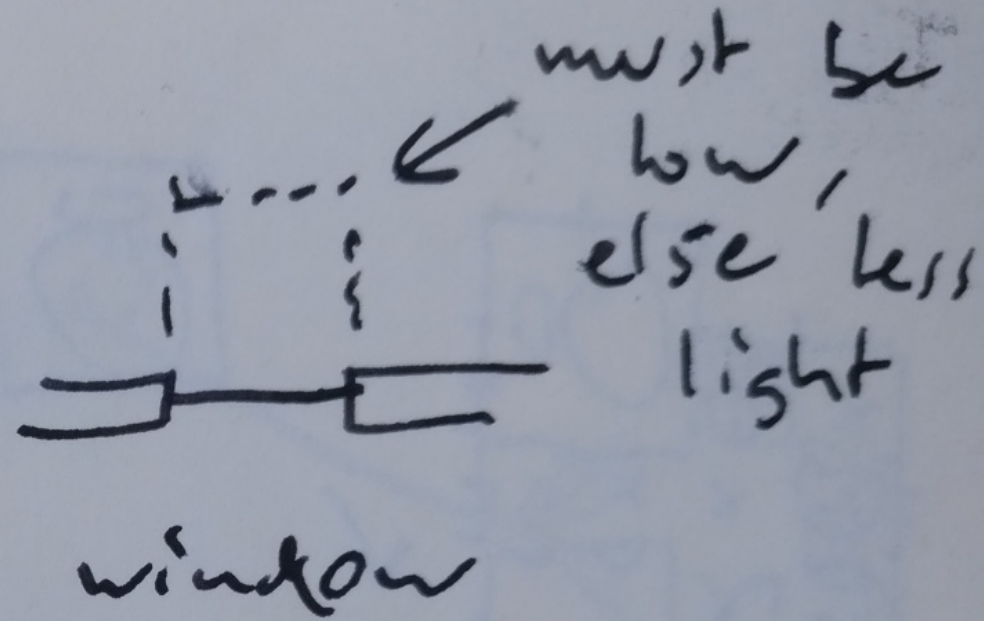 must be
low,
else less
light
window